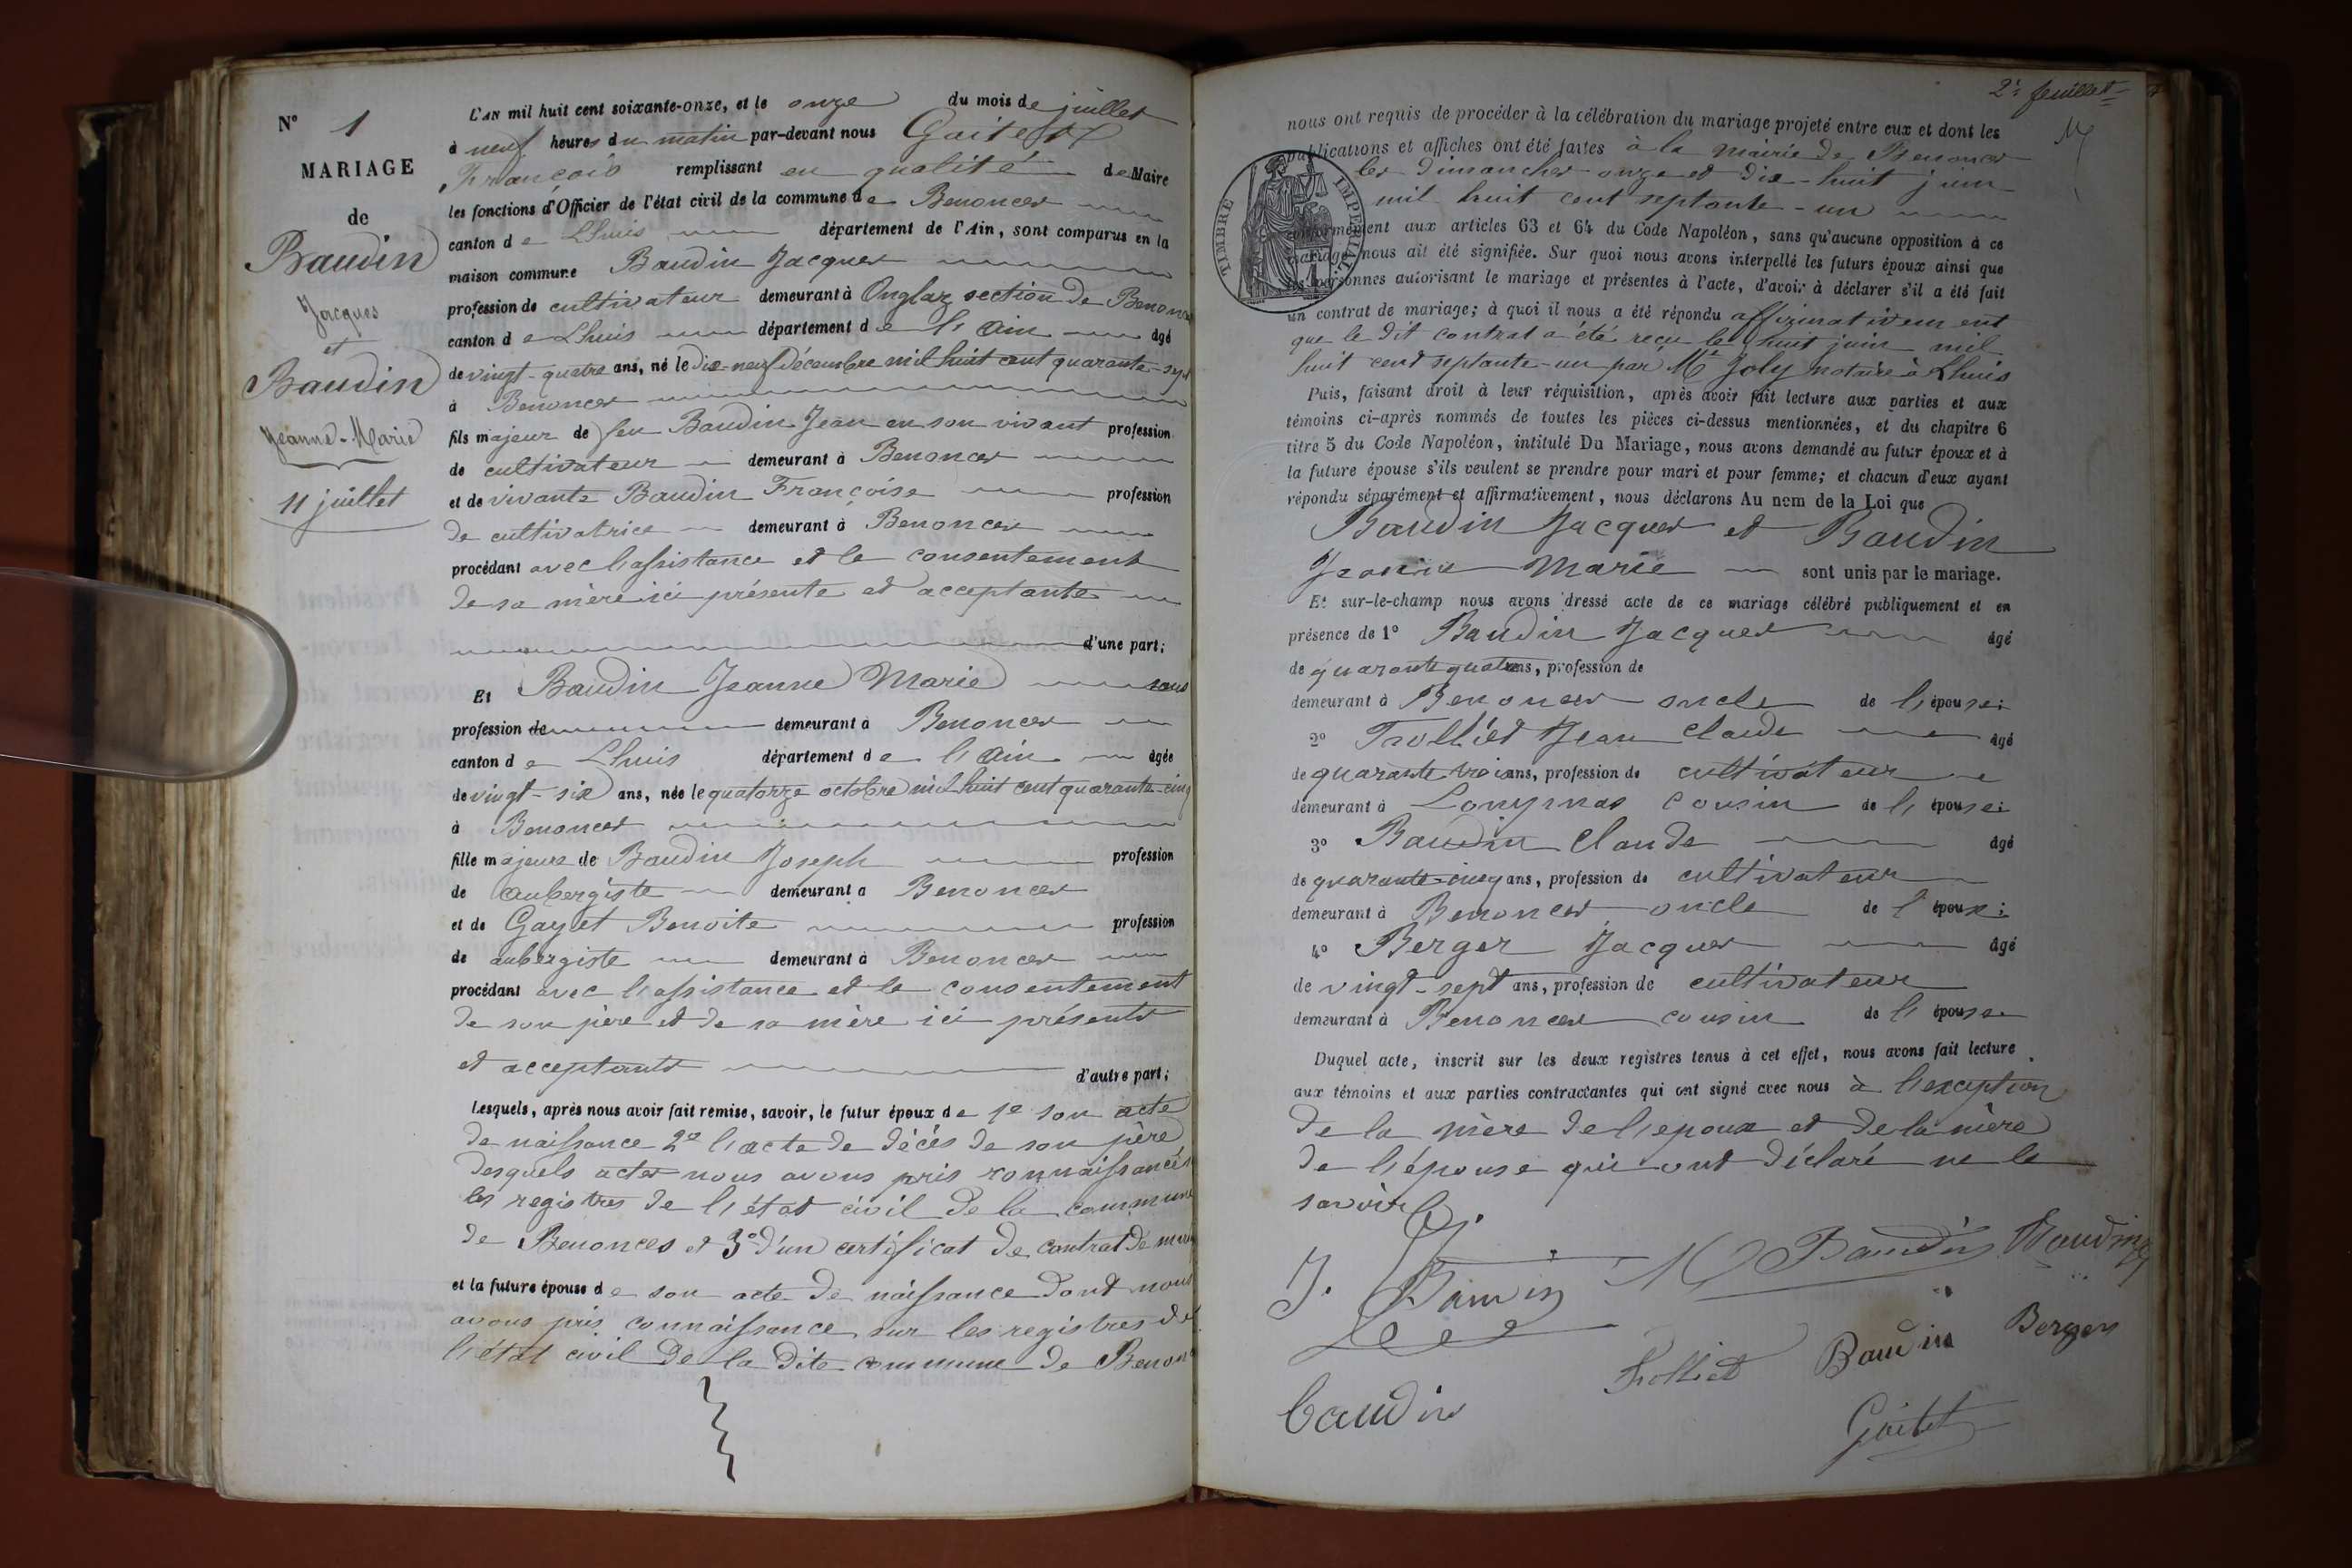 N° 1
MARIAGE
de
Baudin
Jacques
et
Baudin
Jeanne-Marie
11 juillet
L'AN mil huit cent soixante-onze, et le onze du mois de juillet
à neuf heures du matin par-devant nous Gaitet
François remplissant en qualité de Maire
les fonctions d'Officier de l'état civil de la commune de Benonces
canton de Lhuis département de l'Ain, sont comparus en la
maison commune Baudin Jacques
profession de cultivateur demeurant à Onglas section de Benonces
canton de Lhuis département de l'Ain âgé
de vingt-quatre ans, né le dix-neuf Décembre mil huit cent quarante-sept
à Benonces
fils majeur de feu Baudin Jean en son vivant profession
de cultivateur demeurant à Benonces
et de vivante Baudin Françoise profession
de cultivatrice demeurant à Benonces
procédant avec l'assistance et le consentement
de sa mère ici présente et acceptante
d'une part;
Et Baudin Jeanne Marie sans
profession de demeurant à Benonces
canton de Lhuis département de l'Ain âgée
de vingt-six ans, née le quatorze octobre mil huit cent quarante-cinq
à Benonces
fille majeure de Baudin Joseph profession
de aubergiste demeurant a Benonces
et de Gayet Benoite profession
de aubergiste demeurant à Benonces
procédant avec l'assistance et le consentement
de son père et de sa mère ici présents
et acceptants d'autre part;
Lesquels, après nous avoir fait remise, savoir, le futur époux de 1° son acte
de naissance 2° l'acte de décès de son père
desquels actes nous avons pris connaissance
les registres de l'état civil de la commune
de Benonces et 3° d'un certificat de contrat de
et la future épouse de son acte de naissance dont nous
avons pris connaissance sur les registres de
l'état civil de la dite commune de Benon
2e feuillet
nous ont requis de procéder à la célébration du mariage projeté entre eux et dont les
publications et affiches ont été faites à la mairie de Benonces
les dimanches onze et dix-huit juin
mil huit cent septante-un
TIMBRE IMPÉRIAL
conformément aux articles 63 et 64 du Code Napoléon, sans qu'aucune opposition à ce
mariage nous ait été signifiée. Sur quoi nous avons interpellé les futurs époux ainsi que
les personnes autorisant le mariage et présentes à l'acte, d'avoir à déclarer s'il a été fait
un contrat de mariage; à quoi il nous a été répondu affirmativement
que le dit contrat a été reçu le huit juin mil
huit cent septante-un par Me Joly notaire à Lhuis
Puis, faisant droit à leur réquisition, après avoir fait lecture aux parties et aux
témoins ci-après nommés de toutes les pièces ci-dessus mentionnées, et du chapitre 6
titre 5 du Code Napoléon, intitulé Du Mariage, nous avons demandé au futur époux et à
la future épouse s'ils veulent se prendre pour mari et pour femme; et chacun d'eux ayant
répondu séparément et affirmativement, nous déclarons Au nom de la Loi que
Baudin Jacques et Baudin
Jeanne Marie sont unis par le mariage.
Et sur-le-champ nous avons dressé acte de ce mariage célébré publiquement et en
présence de 1° Baudin Jacques âgé
de quarante quatre ans, profession de
demeurant à Benonces oncle de l'épouse;
2° Trolliet Jean Claude âgé
de quarante trois ans, profession de cultivateur
demeurant à cousin de l'épouse;
3° Baudin Claude âgé
de quarante-cinq ans, profession de cultivateur
demeurant à Benonces oncle de l'époux;
4° Berger Jacques âgé
de vingt-sept ans, profession de cultivateur
demeurant à Benonces cousin de l'épouse
Duquel acte, inscrit sur les deux registres tenus à cet effet, nous avons fait lecture
aux témoins et aux parties contractantes qui ont signé avec nous à l'exception
de la mère de l'epoux et de la mère
de l'épouse qui ont déclaré ne le
savoir
J. Baudin M Baudin Baudin
Trolliet Baudin Berger
Baudin
Gaitet